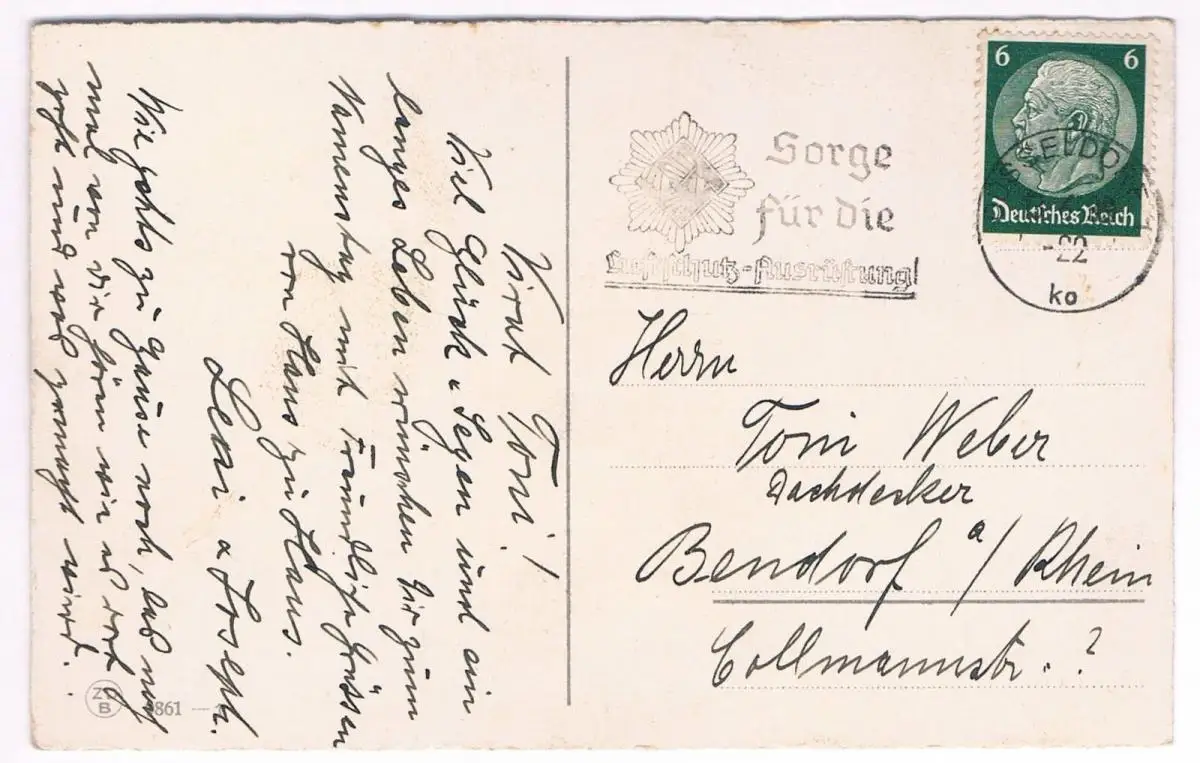 Toni!
Viel Glück u Segen und ein
langes Leben wünschen Dir zum
Namenstag mit freundliche Grüssen
von Haus zu Haus.
Leni u Joseph.
Wie gehts zu Hause noch, laß mich
mal von dir hören wie es dort
geht und was gemacht wird.
9861
Sorge
für die
Luftschutz-Ausrüstung!
6 6
Deutsches Reich
SSELDO
-22
ko
Herrn
Toni Weber
Dachdecker
Bendorf a/Rhein
Collmannstr. ?